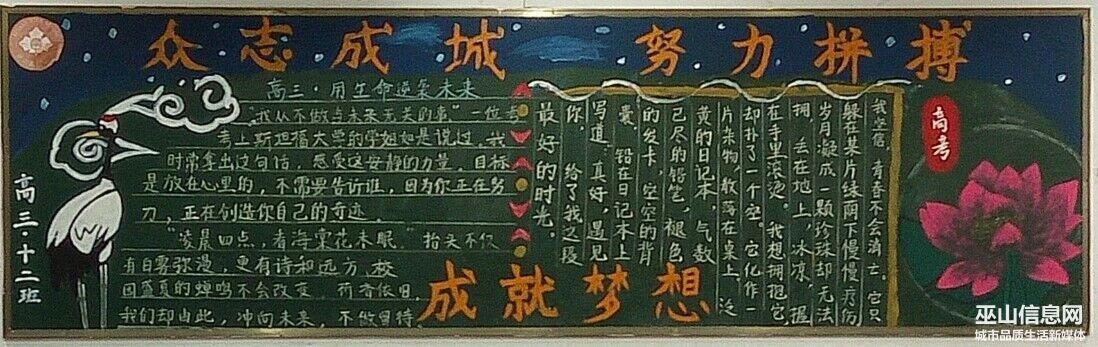 众志成城 努力拼搏
高三·用生命逆袭未来
"我从不做与未来无关的事"一位考
考斯坦福大学的学姐如是说过，我
时常拿出这句话，感受这安静的力量。目标
是放在心里的，不需要告诉谁，因为你正在努
力，正在创造你自己的奇迹。
"凌晨四点，看海棠花未眠。"抬头不仅
有白雾弥漫，更有诗和远方，校
园盛夏的蝉鸣不会改变 荷香依旧
我们却由此，冲向未来，不做等待
高三·十二班
我坚信，青春不会消亡。它只
躲在某片绿荫下慢慢疗伤
岁月凝成一颗珍珠却无法
拥，丢在地上，冰凉，握
在手里滚烫。我想拥抱它
却扑了一个空。它化作一
片杂物，散落在桌上，泛
黄的日记本，气数
已尽的铅笔，褪色
的发卡，空空的背
囊，铅在日记本上
写道，真好，遇见
你，给了我这段
最好的时光。
高考
成就梦想
巫山信息网
城市品质生活新媒体